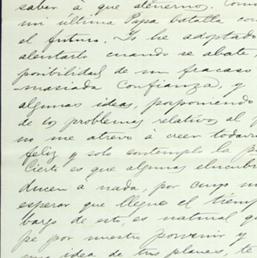 saber a que atenerno. Como
mi última Papa batalla con
el futuro. Te he adoptado
alentarlo cuando se abate,
ponibilidad de un fracaso
masiada confianza, y
algunas ideas, proponiendo
de los problemas relativo al
no me atrevo á creer todavía
feliz y solo contemplo la
Cierto es que algunas
ducen á nada, por cuyo
esperar que llegue el tiemp
bargo de esto, es natural q
pe por nuestro porvenir y
una idea de tus planes, te